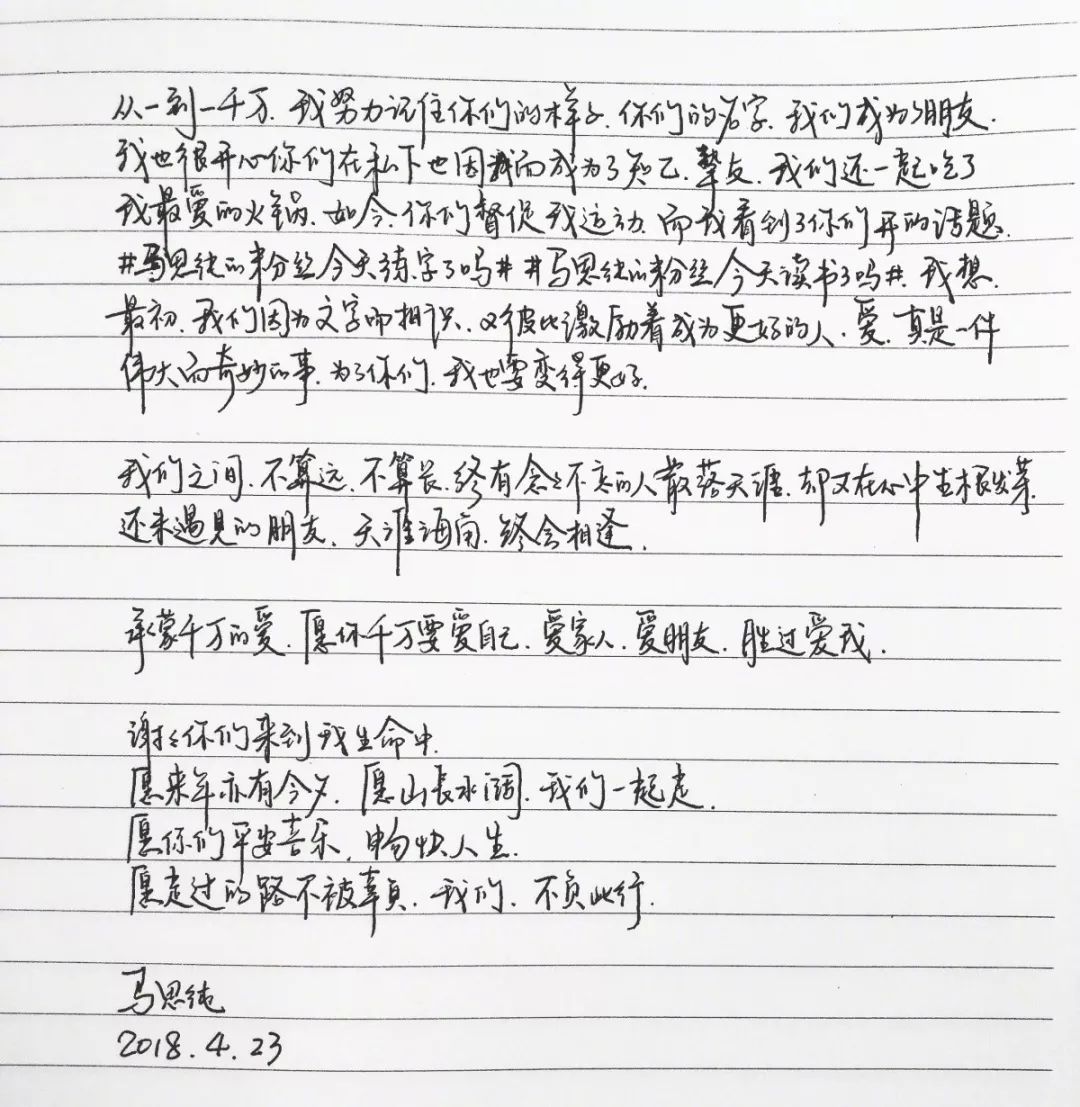 从一到一千万.我努力记住你们的样子.你们的名字.我们成为了朋友.
我也很开心你们在私下也因我而成为了知己.挚友.我们还一起吃了
我最爱的火锅.如今.你们督促我运动.而我看到了你们开的话题.
#马思纯的粉丝今天练字了吗# #马思纯的粉丝今天读书了吗#.我想.
最初.我们因为文字而相识.又彼此激励着成为更好的人.爱.真是一件
伟大而奇妙的事.为了你们.我也要变得更好.
我们之间.不算远.不算长.终有念々不忘的人散落天涯.却又在心中生根发芽.
还未遇见的朋友.天涯海角.终会相逢.
承蒙千万的爱.愿你千万要爱自己.爱家人.爱朋友.胜过爱我.
谢々你们来到我生命中.
愿来年亦有今夕.愿山长水阔.我们一起走.
愿你们平安喜乐.畅快人生.
愿走过的路不被辜负.我们.不负此行.
马思纯
2018.4.23